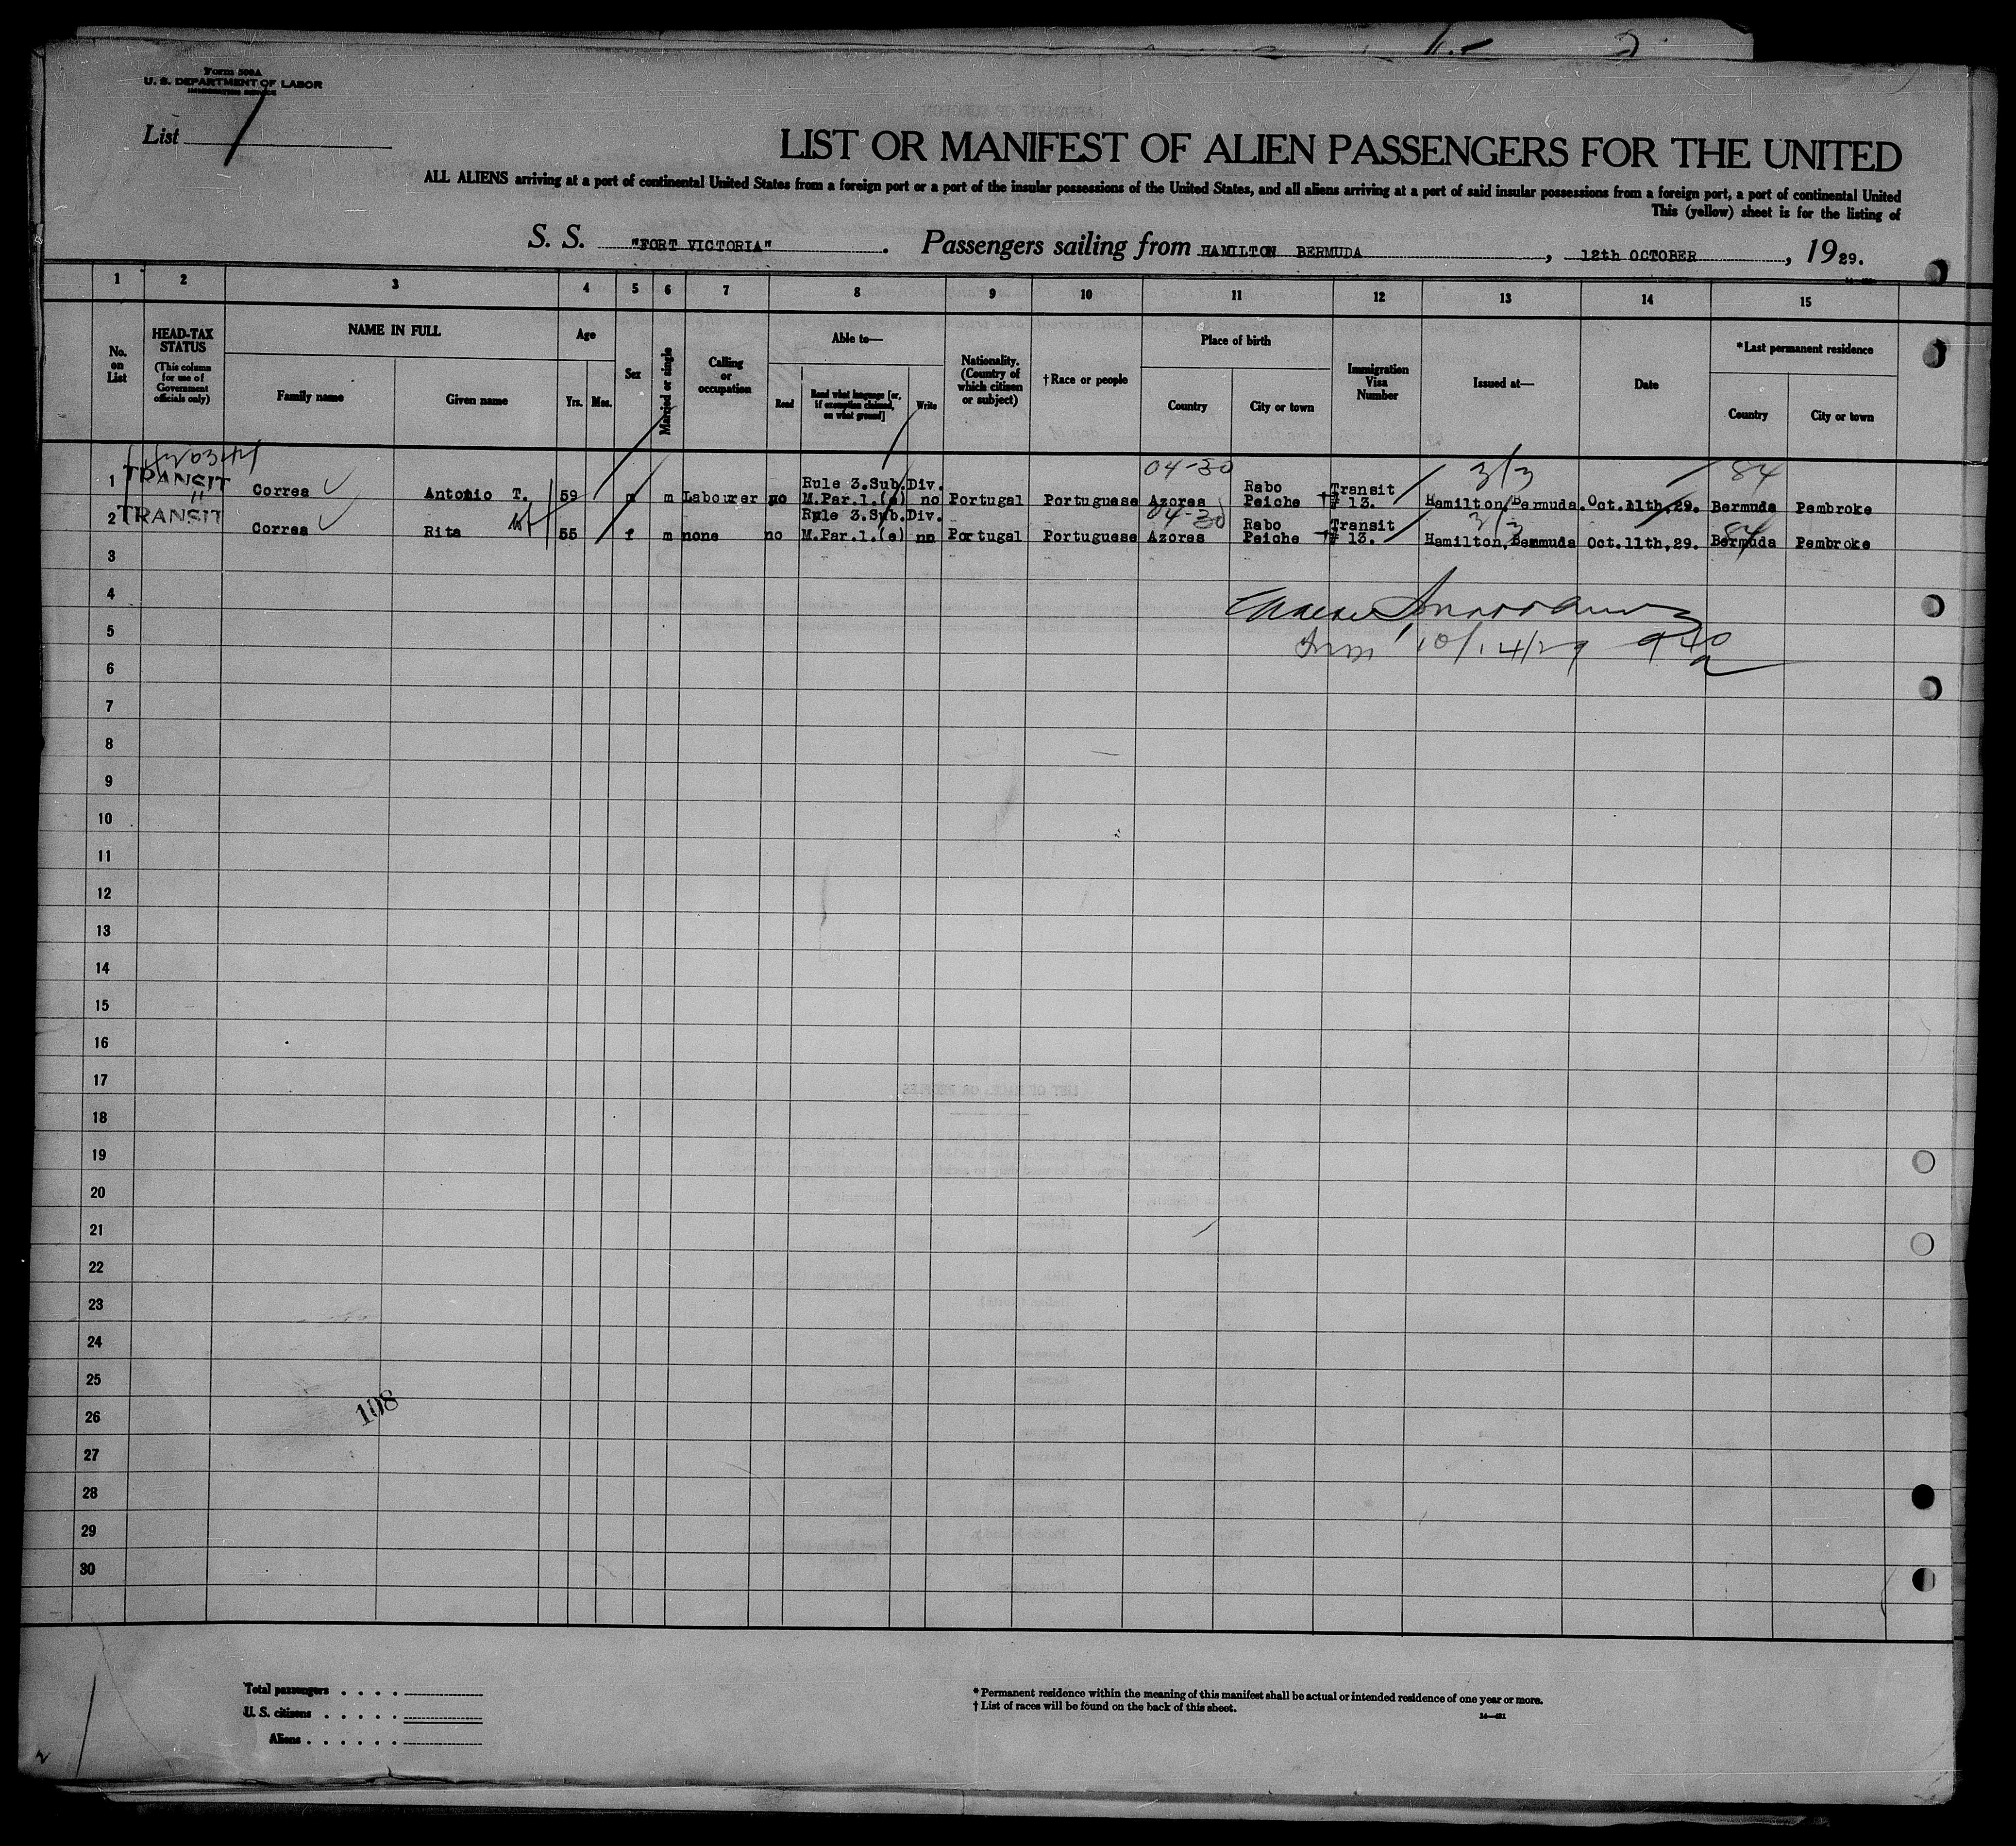 Form 500A
U. S. DEPARTMENT OF LABOR
IMMIGRATION SERVICE
List
LIST OR MANIFEST OF ALIEN PASSENGERS FOR THE UNITED
ALL ALIENS arriving at a port of continental United States from a foreign port or a port of the insular possessions of the United States, and all aliens arriving at a port of said insular possessions from a foreign port, a port of continental United
This (yellow) sheet is for the listing of
S. S. "FORT VICTORIA". Passengers sailing from HAMILTON BERMUDA, 12th OCTOBER, 1929.
1 2 3 4 5 6 7 8 9 10 11 12 13 14 15
No. on List
HEAD-TAX STATUS
(This column for use of Government officials only)
NAME IN FULL
Family name
Given name
Age
Yrs.
Mos.
Sex
Married or single
Calling or occupation
Able to—
Read
Read what language [or, if exemption claimed, on what ground]
Write
Nationality. (Country of which citizen or subject)
†Race or people
Place of birth
Country
City or town
Immigration Visa Number
Issued at—
Date
*Last permanent residence
Country
City or town
04-30 3/3 84
1 TRANSIT Correa Antonio T. 59 m m Labourer no Rule 3.Sub.Div. M.Par.1.(e) no Portugal Portuguese Azores Rabo Peiche Transit # 13. Hamilton, Bermuda. Oct.11th,29. Bermuda Pembroke
04-30 3/3 84
2 TRANSIT Correa Rita 55 f m none no Rule 3.Sub.Div. M.Par.1.(e) nn Portugal Portuguese Azores Rabo Peiche Transit # 13. Hamilton, Bermuda Oct.11th,29. Bermuda Pembroke
3
4
5
10/14/29 940
6
7
8
9
10
11
12
13
14
15
16
17
18
19
20
21
22
23
24
25
108
26
27
28
29
30
Total passengers
U. S. citizens
Aliens
* Permanent residence within the meaning of this manifest shall be actual or intended residence of one year or more.
† List of races will be found on the back of this sheet.